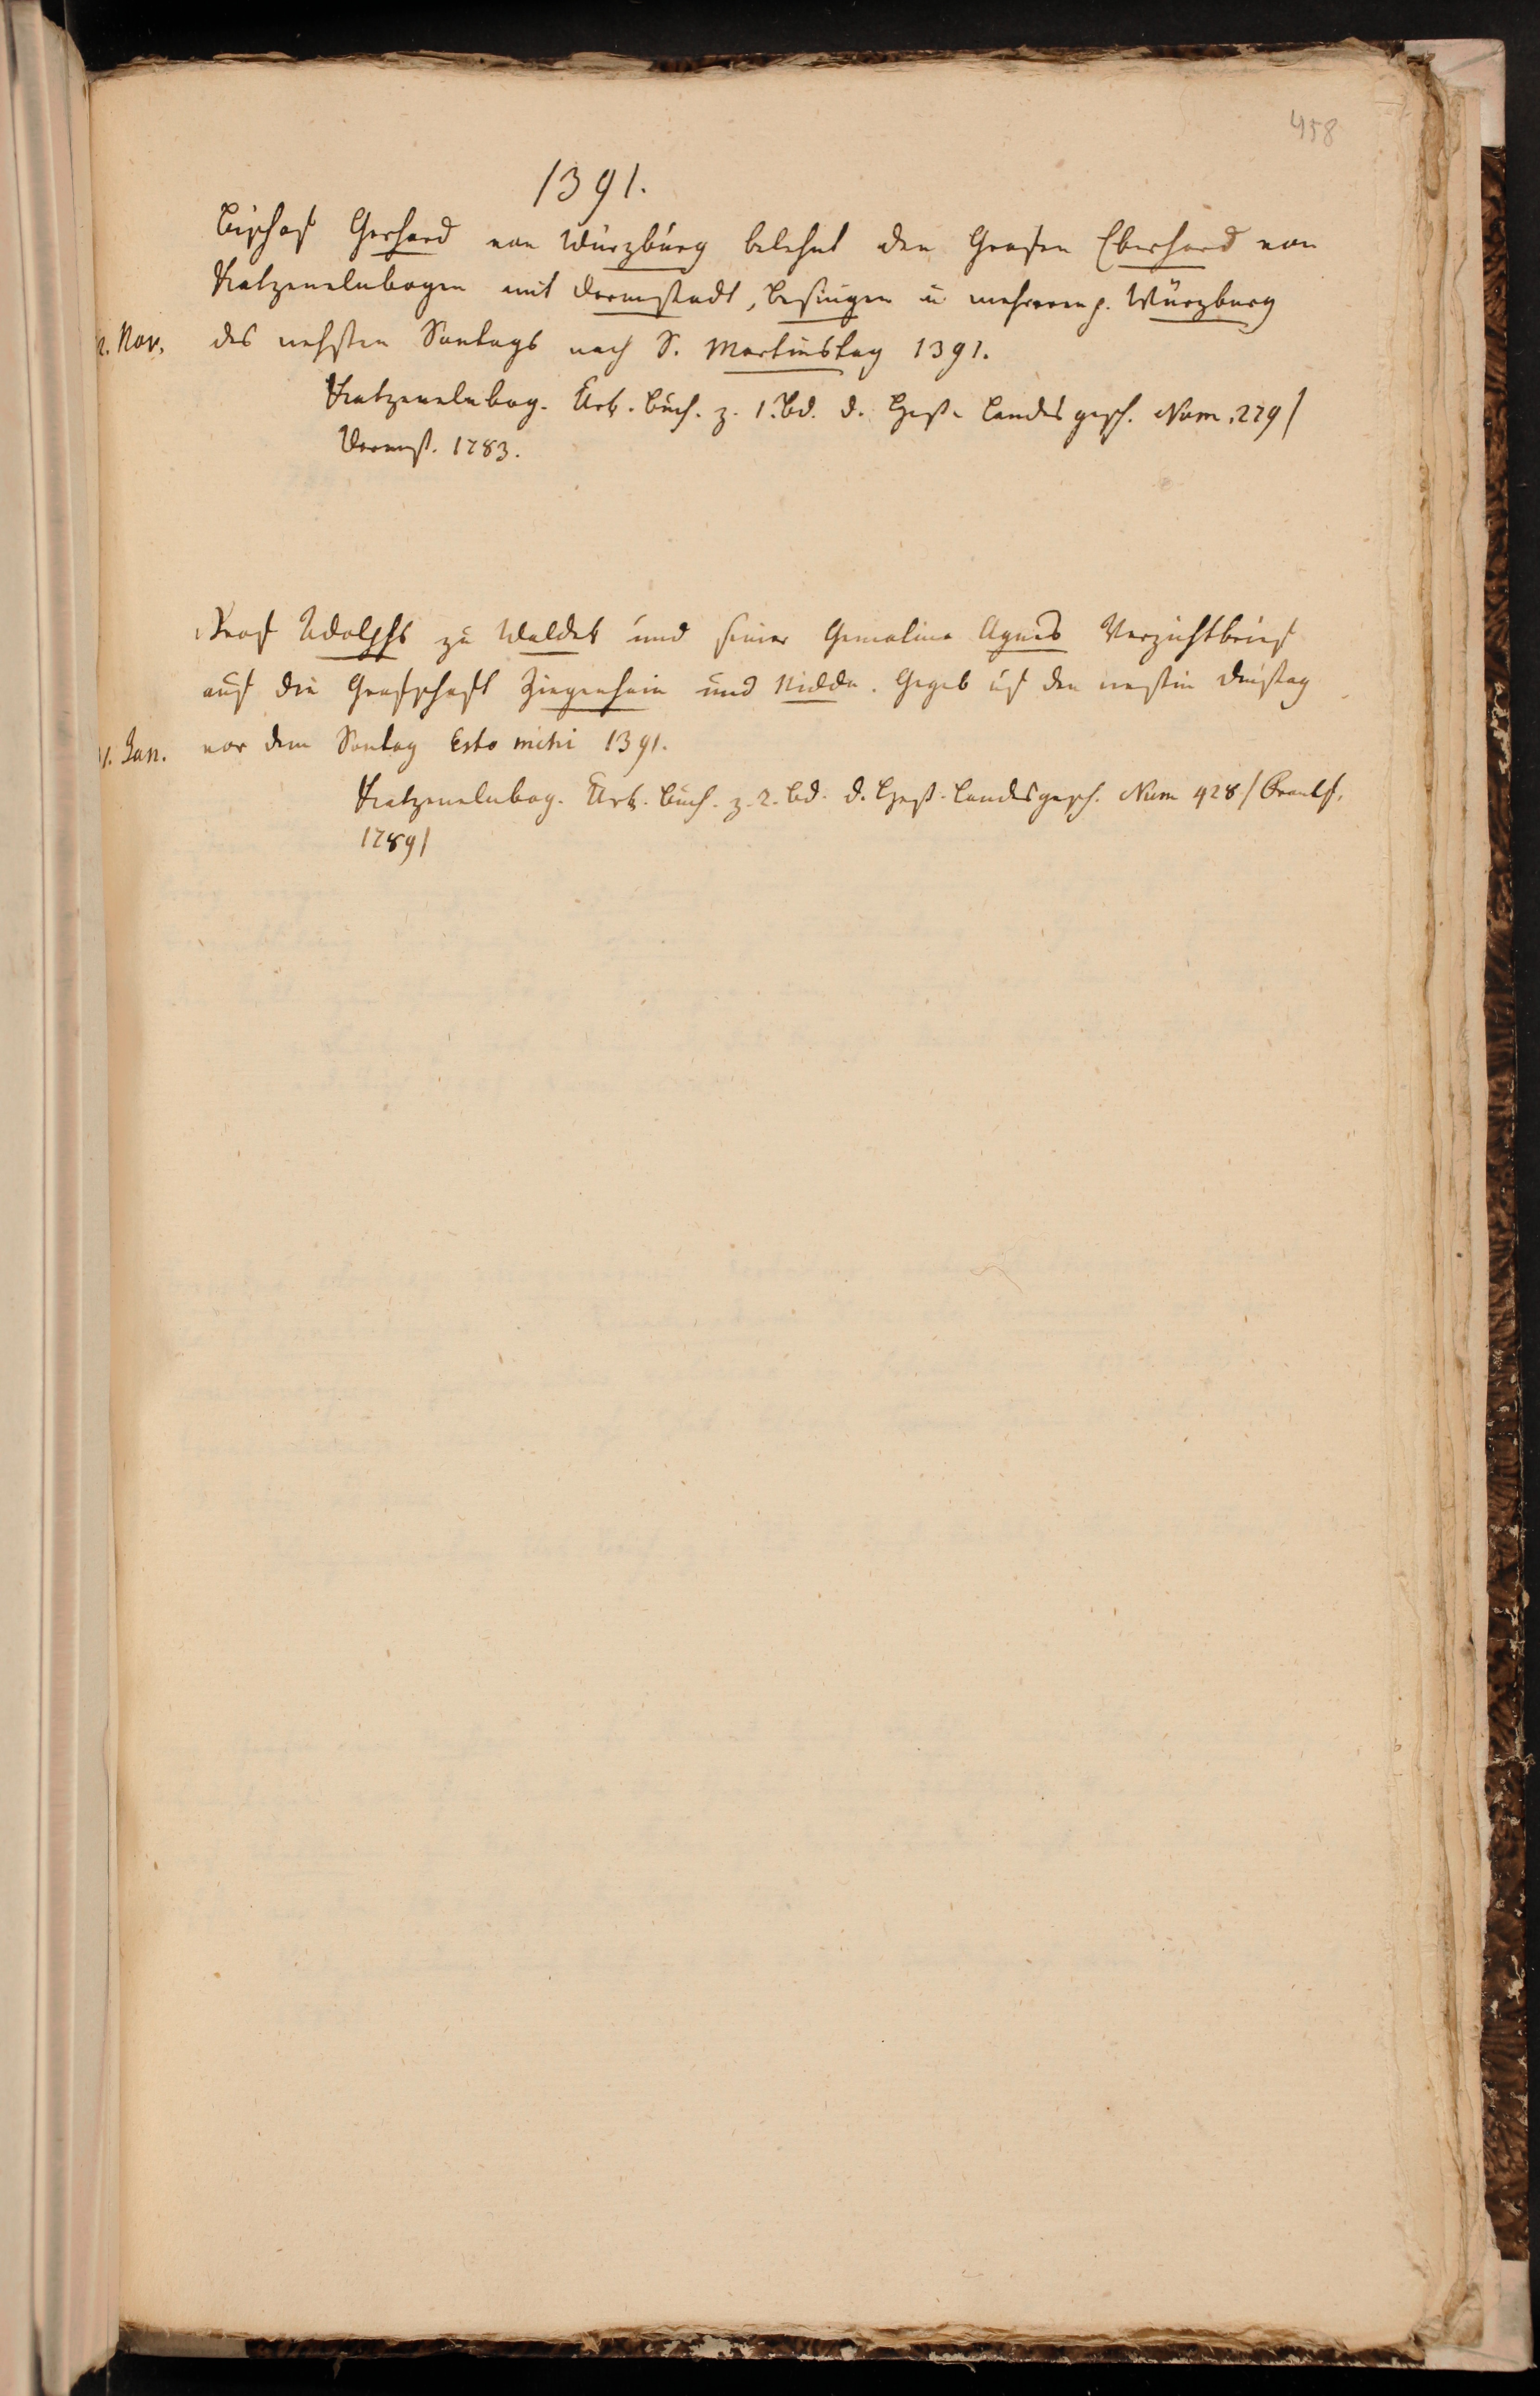 458
1391.
Bischof Gerhard von Würzburg belehnt den Grafen Eberhard von
Katzenelnbogen mit Darmstadt, Besungen u mehreren p. Würzburg
2. Nov. des nehsten Sontags nach S. Martinstag 1391.
Katzenelnbog. Urk. Buch. z. 1. Bd. d. Heß. Landesgesch. Num. 229/
Darmst. 1783.
Graf Adolphs zu Waldek und seiner Gemalinn Agnes Verzichtbrief
auf die Grafschaft Ziegenhain und Nidda. Gegeb uf den nestin Dinstag
1. Jan. vor dem Sontag Esto mihi 1391.
Katzenelnbog. Urk. Buch. z. 2. Bd. d. Heß. Landesgesch. Num 428/ Frankf.
1789/